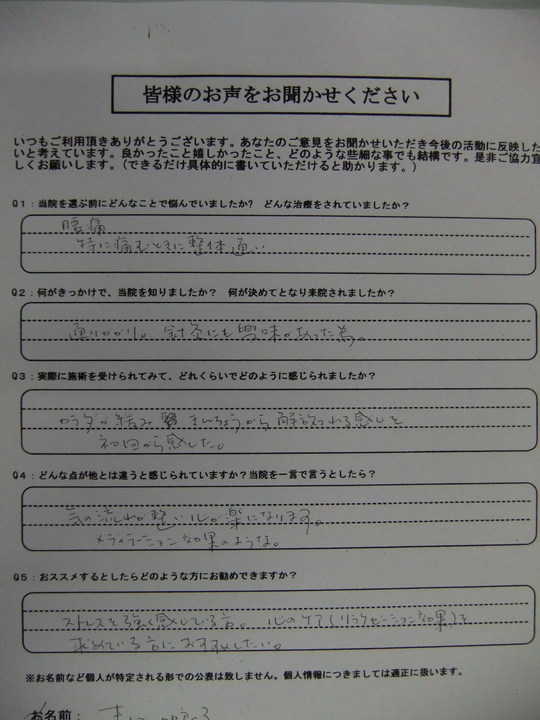 皆様のお声をお聞かせください
いつもご利用頂きありがとうございます。あなたのご意見をお聞かせいただき今後の活動に反映した
いと考えています。良かったこと嬉しかったこと、どのような些細な事でも結構です。是非ご協力宜
しくお願いします。（できるだけ具体的に書いていただけると助かります。）
Q1：当院を選ぶ前にどんなことで悩んでいましたか？ どんな治療をされていましたか？
腰痛
特に痛むときに整体通い
Q2：何がきっかけで、当院を知りましたか？ 何が決めてとなり来院されましたか？
通りがかり。針灸にも興味があった為。
Q3：実際に施術を受けられてみて、どれくらいでどのように感じられましたか？
カラダの痛み きんちょうから解放される感じを
初回から感じた。
Q4：どんな点が他とは違うと感じられていますか？当院を一言で言うとしたら？
気の流れが整い心が楽になります。
メディテーション効果のような。
Q5：おススメするとしたらどのような方にお勧めできますか？
ストレスを強く感じている方。心のケア（リラクゼーション効果）を
求めている方におすすめしたい。
※お名前など個人が特定される形での公表は致しません。個人情報につきましては適正に扱います。
お名前：